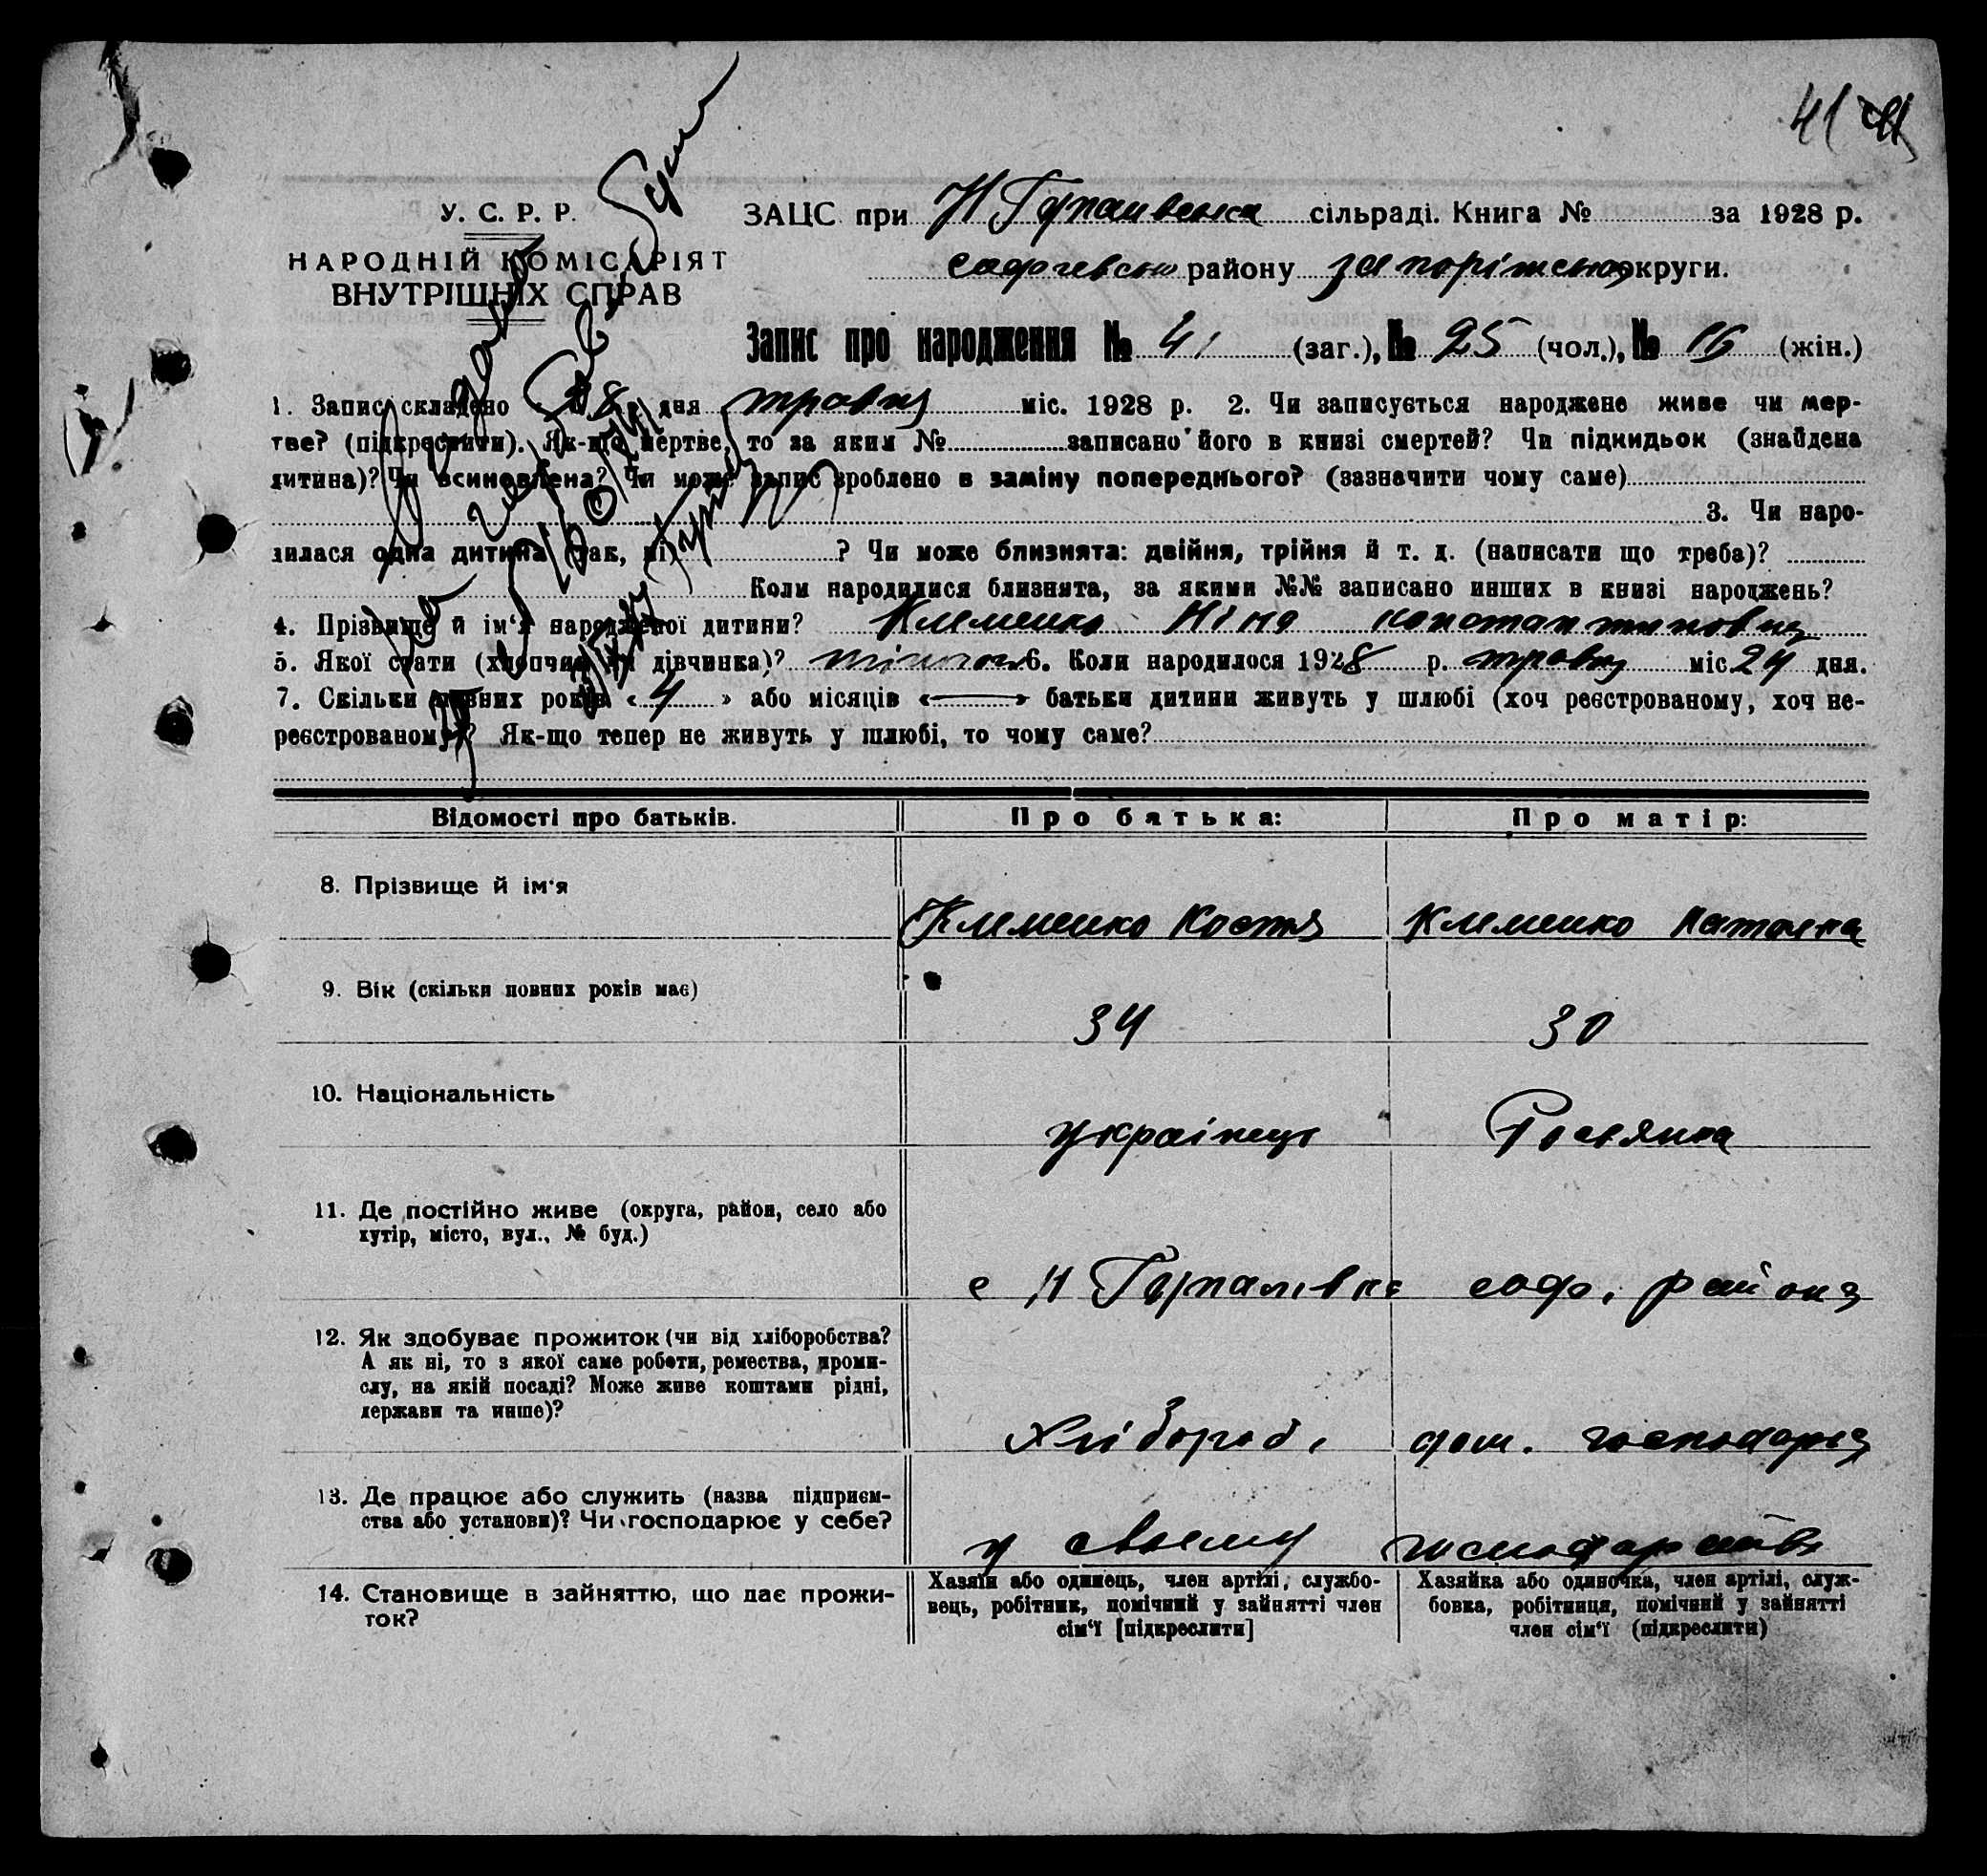 41
У. С. Р. Р.
НАРОДНІЙ КОМІСАРІЯТ
ВНУТРІШНІХ СПРАВ
ЗАЦС при Н Гупалвська сільраді. Книга № за 1928 р.
району запоріжської округи.
Запис про народження № 41 (заг.), № 25 (чол.), № 16 (жін.)
1. Запис складено 28 дня травня міс. 1928 р. 2. Чи записується народжене живе чи мер-
тве? (підкреслити). Як-що мертве, то за яким № записано його в книзі смертей? Чи підкидьок (знайдена
дитина)? Чи всиновлена? Чи може запис зроблено в заміну попереднього? (зазначити чому саме)
3. Чи наро-
дилася одна дитина (так, ні) ? Чи може близнята: двійня, трійня й т. д. (написати що треба)?
Коли народилися близнята, за якими №№ записано инших в книзі народжень?
4. Прізвище й ім'я народженої дитини? Клименко Ніна Константиновна
5. Якої стати (хлопчик чи дівчинка)? жіночої 6. Коли народилося 1928 р. травня міс. 24 дня.
7. Скільки повних років « 4 » або місяців « — » батьки дитини живуть у шлюбі (хоч реєстрованому, хоч не-
реєстрованому)? Як-що тепер не живуть у шлюбі, то чому саме?
Відомості про батьків. Про батька: Про матір:
8. Прізвище й ім'я
Клименко Костя Клименко Наталка
9. Вік (скільки повних років має)
34 30
10. Національність
українець Росіянка
11. Де постійно живе (округа, район, село або
хутір, місто, вул., № буд.)
с Н Гупалівка соф. района
12. Як здобуває прожиток (чи від хліборобства?
А як ні, то з якої саме роботи, ремества, проми-
слу, на якій посаді? Може живе коштами рідні,
держави та инше)?
Хлібороб. дом. господарка
13. Де працює або служить (назва підприєм-
ства або установи)? Чи господарює у себе?
у своему господарстві
14. Становище в зайняттю, що дає прожи-
ток?
Хазяїн або одинець, член артілі, службо-
вець, робітник, помічний у зайнятті член
сім'ї [підкреслити]
Хазяйка або одиночка, член артілі, служ-
бовка, робітниця, помічний у зайнятті
член сім'ї (підкреслити)